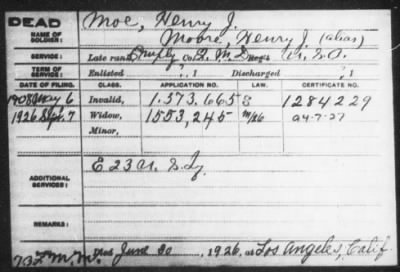 DEAD
Moe, Henry J.
NAME OF SOLDIER:
Moore, Henry J. (alias)
SERVICE:
Late rank, Co. Q. M. D. Reg't U. S. A.
TERM OF SERVICE:
Enlisted , 1 Discharged , 1
DATE OF FILING. CLASS. APPLICATION NO. LAW. CERTIFICATE NO.
1908 May 6 Invalid, 1.373,665 1284229
1926 Sept. 7 Widow, 1553,245
Minor,
ADDITIONAL SERVICES:
E 23
REMARKS:
Died June 30 , 1926, at Los Angeles, Calif